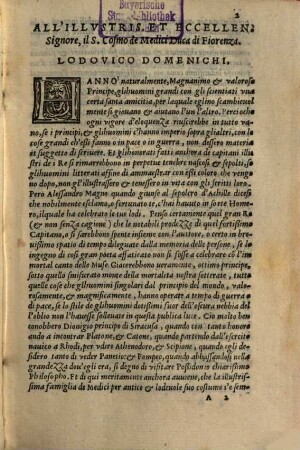 Bayerische
Staatsbibliothek
München
2
ALL'ILLVSTRIS. ET ECCELLEN.
Signore, il S. Cosmo de Medici Duca di Fiorenza.
LODOVICO DOMENICHI.
HANNO naturalmente, Magnanimo e valoroso
Principe, glihuomini grandi con gli scientiati vna
certa santa amicitia, per laquale eglino scambieuol
mente si giouano & aiutano l'un l'altro. Percioche
ogni vigore d'eloquenza riuscirebbe in tutto va-
no, se i principi, & glihuomini c'hanno imperio sopra gli altri, con le
cose grandi ch'essi fanno o in pace o in guerra, non dessero materia
et suggetto di scriuere. Et glihonorati fatti anchora de capitani illu
stri & de i Re si rimarrebbono in perpetue tenebre nascosi & sepolti, se
gli huomini litterati affine di ammaestrar con essi coloro che vengono
no dopo, non gl'illustrassero & tenessero in vita con gli scritti loro.
Però Alessandro Magno quando giunse al sepolcro d'Achille disse
che nobilmente esclamò, o fortunato te, c'hai hauuto in sorte Home-
ro, ilquale ha celebrato le tue lodi. Pensò certamente quel gran Re
(& non senza cagione) che le notabili prodezze di quel fortissimo
Capitano, o si sarebbono spente insieme con l'auttore, o certo in bre-
uissimo spatio di tempo dileguate dalla memoria delle persone, se lo
ingegno di così gran poeta affaticato non si fosse a celebrarle co l'im
mortal canto delle Muse. Giacerebbono anchora, ottimo principe,
sotto quella oscurità nome della mortalità nostra sotterrate, tutte
quelle cose che glihuomini singolari dal principio del mondo, valo-
rosamente, & magnificamente, hanno operate a tempo di guerra &
di pace, se lo stile de glihuomini dotissimi fuor dell'oscura nebbia del
l'oblio non l'hauesse solleuate in questa publica luce. Ciò molto ben
conobbero Dionigio principe di Siracusa, quando con tanto honore
andò a incontrar Platone, & Catone, quando partendo dall'esercito
nauicò a Rhodi, per vdire Athenodoro, & Scipione, quando egli de-
siderò tanto di veder Panetio: & Pompeo, quando abbassandosi nella
grandezza dou'egli era, si degnò di visitare Posidonio chiarissimo
Philosopho. Et di qui meritamente anchora auuene, che la illustris-
sima famiglia de Medici per antico & lodeuole suo costume s'è sem-
A 2